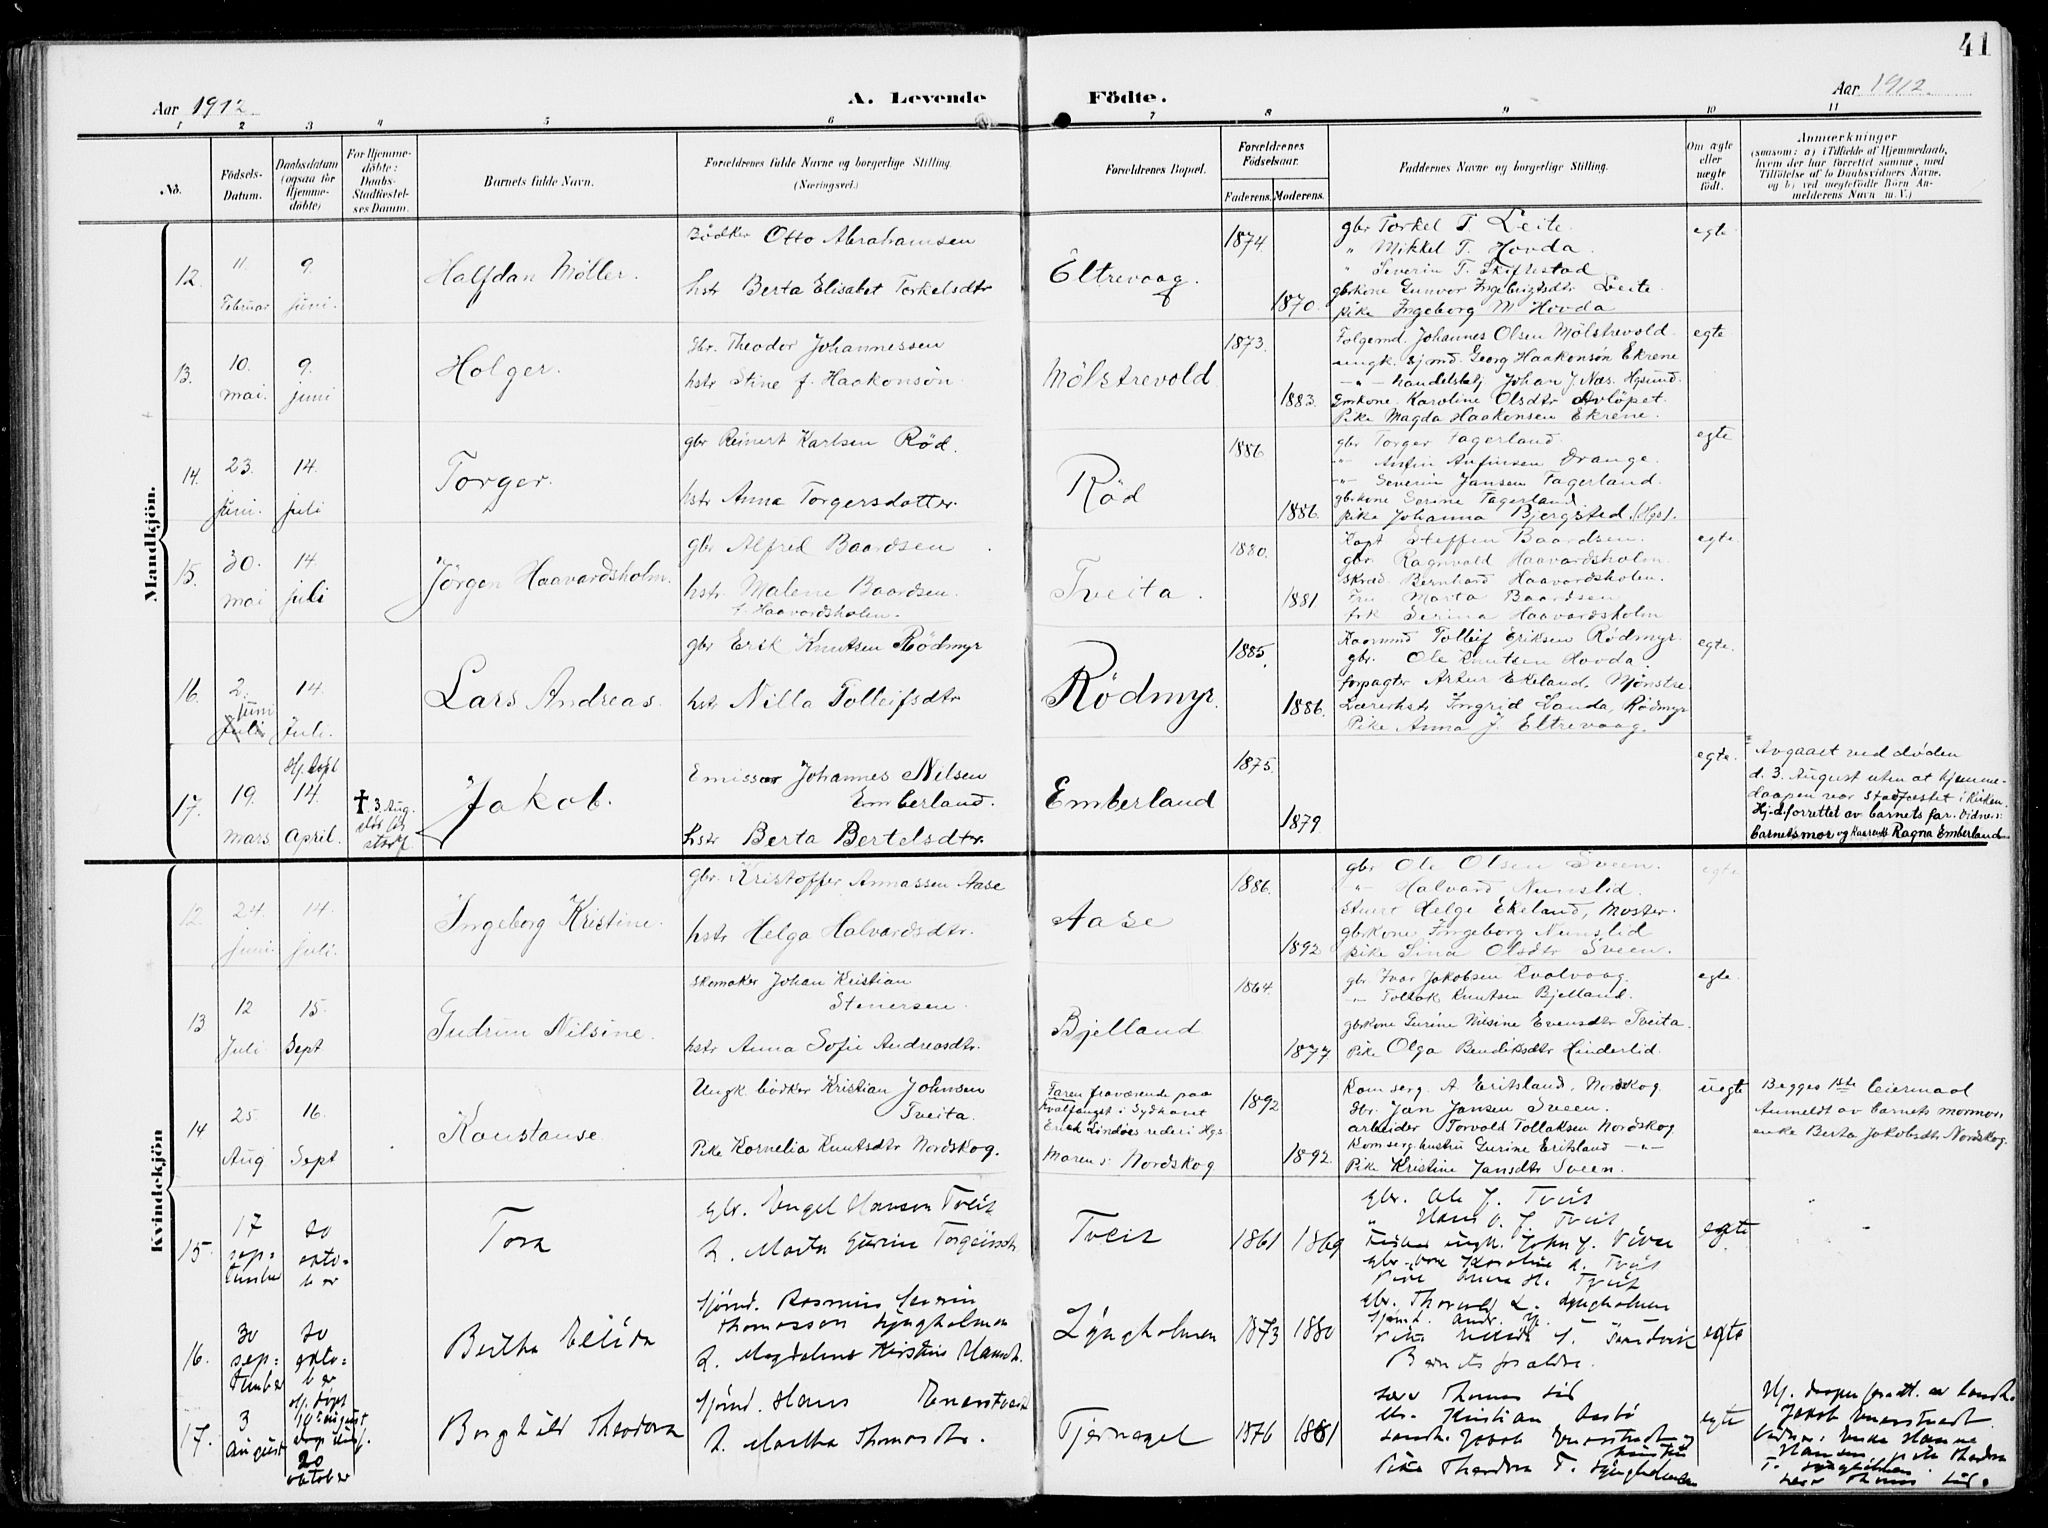 41
Aar 1912.
A. Levende Födte.
Aar 1912.
1 2 3 4 5 6 7 8 9 10 11
No.
Födsels-
Datum.
Daabsdatum
(ogsaa for
Hjemme-
döbte)
For Hjemme-
döbte:
Daabs-
Stadfæstel-
ses Datum.
Barnets fulde Navn.
Forældrenes fulde Navne og borgerlige Stilling
(Næringsvei.)
Forældrenes Bopæl.
Forældrenes
Födselsaar.
Faderens. Moderens.
Faddernes Navne og borgerlige Stilling.
Om ægte
eller
uægte
födt.
Anmærkninger
(saasom: a) i Tilfælde af Hjemmedaab,
hvem der har forrettet samme, med
Tilföielse af to Daabsvidners Navne,
og b) ved uægtefödte Börn An-
melderens Navn m. V.)
Mandkjön.
12.
11.
Februar
9.
juni.
Halfdan Møller.
Bødker Otto Abrahamsen
hstr Berta Elisabet Torkelsdtr
Eltrevaag.
1874
1870.
gbr Torkel T. Leite.
" Mikkel T. Hovda.
" Severin T. Skifrestad
gbrkone Gunvor Ingebrigtsdtr Leite.
pike Ingeborg M Hovda
egte
13.
10.
mai.
9.
juni
Holger.
Gbr. Theodor Johannessen
hstr Stine f. Haakonsøn.
Mølstrevold
1873.
1883.
Folgemd Johannes Olsen Mølstrevold
ungk. sjmd. Georg Haakonsøn Ekrene
-"- handelsbtj Johan J. Næs. Hgsund.
Gbrkone. Karoline Olsdtr Avløpet.
Pike Magda Haakonsen Ekrene.
egte
14.
23.
juni.
14.
juli
Torger.
gbr Reinert Karlsen Rød.
hstr Anna Torgersdatter.
Rød
1886
1886.
gbr Torger Fagerland.
-"- Anfin Anfinsen Drange.
-"- Severin Jansen Fagerland.
gbrkone Serine Fagerland
pike Johanna Bjergsted (Hgs).
egte
15.
30.
mai
14
juli
Jørgen Haavardsholm.
gbr Alfred Baardsen
hstr Malene Baardsen.
f. Haavardsholm.
Tveita.
1880.
1881.
Kapt Steffen Baardsen.
gbr. Ragnvald Haavardsholm.
skræd. Bernhard Haavardsholm.
Fru Marta Baardsen
frk Serina Haavardsholm
egte.
16.
2.
juni
Juli
14.
Juli.
Lars Andreas.
gbr Erik Knutsen Rødmyr
hst Nilla Tolleifsdtr
Rødmyr.
1885.
1886.
Kaarmd Tolleif Eriksen Rødmyr.
gbr. Ole Knutsen Hovda.
forpagter Artur Ekeland, Mjønstre.
Lærerhstr Ingrid Landa, Rødmyr
Pike Anna J. Eltrevaag.
egte.
17.
19.
mars
Hj. døpt
14.
April.
† 3. Aug.
Jakob.
Emissær Johannes Nilsen
Emberland.
hstr Berta Bertelsdtr.
Emberland
1875.
1879.
egte.
Avgaaet ved døden
d. 3. August uten at hjemme-
daapen var stadfæstet i kirken.
Hj.d. forrettet av barnets far. Vidner:
barnets mor og Ragna Emberland
Kvindekjön
12
24.
juni.
14.
juli.
Ingeborg Kristine.
gbr. Kristoffer Annassen Aase
hstr Helga Halvardsdtr.
Aase
1886.
1892
gbr Ole Olsen Sveen.
-"- Halvard Nunslid.
Stuert Helge Ekeland, Moster.
gbrkone Ingeborg Nunslid
pike Sina Olsdtr Sveen.
egte
13
12
Juli
15.
Sept
Gudrun Nilsine.
skomaker Johan Kristian
Stenersen.
hstr Anna Sofie Andreasdtr.
Bjelland
1864.
1877
gbr Ivar Jakobsen Kvalvaag
-"- Tollak Knutsen Bjelland.
gbrkone Gurine Nilsine Evensdtr Tveita.
Pike Olga Bendiksdtr Hinderlid.
egte.
14
25
Aug
16.
Sept
Konstanse.
Ungk. bødker Kristian Johnsen
Tveita.
Pike Kornelia Knutsdtr Nordskog.
Faren fraværende paa
Kvalfangst i Sydhavet
Erik Lindøes rederi Hgs
Morens: Nordskog
1892
1892.
Kom serg. A. Eriksland, Nordskog.
Gbr. Jan Jansen Sveen.
arbeider Torvald Tollaksen Nordskog
Kom serg hustru Gurine Eriksland -"-
Pike Kristine Jansdtr Sveen.
uegte
Begges 1ste leiermaal
Anmeldt av barnets mormor,
enke Berta Jakobsdtr Nordskog.
15.
17
sep-
tember
20
okto-
ber
Tora
gbr. Engel Hanson Tveit
h. Marta Gurine Torgeirsdtr
Tveit
1861 1869
gbr. Ole J. Tveit
" Hans J. Tveit
ungk. John J.
Karoline Tveit
Pike Anna H. Tveit
egte
16.
30
sep-
tember
20
okto-
ber
Bertha Elida
Sjømd. Rasmus Severin
Thomassen Lyngholmen
h. Magdalena Kirstine Hansdtr.
Lyngholmen
1873 1880
Gbr. Thorvald L. Lyngholmen
Sjømd. Andr.
Pike Sandvik
Barnets forældre.
egte
17.
3
august
Hj. døpt
10 august
20
oktober
Borghild Theodora
Sjømd. Hans Enerstvedt
h. Martha Thomasdtr.
Tjernagel
1876 1881
Thomas Lid
Gbr. Kristian
Jakob Enerstvedt
Pike Theodora T. Lyngholmen
egte
Hj. daapen forrett. av
Jakob Enerstvedt.
Vidner: Enke Hanna
Hansen, pike Theodora
T. Lyngholmen.
Thomas Lid.